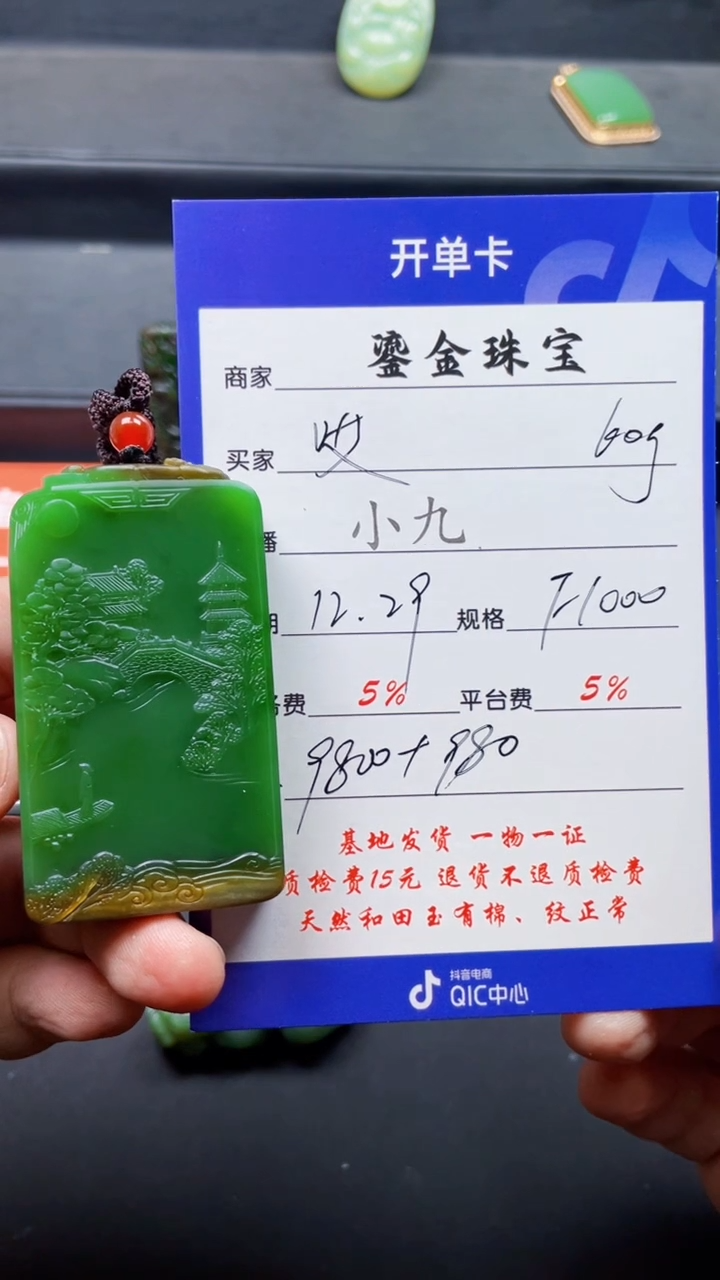 开单卡
商家 鎏金珠宝
买家 60g
播 小九
期 12.29 规格 71000
务费 5% 平台费 5%
9800+980
基地发货 一物一证
质检费15元 退货不退质检费
天然和田玉有棉、纹正常
抖音电商
QIC中心